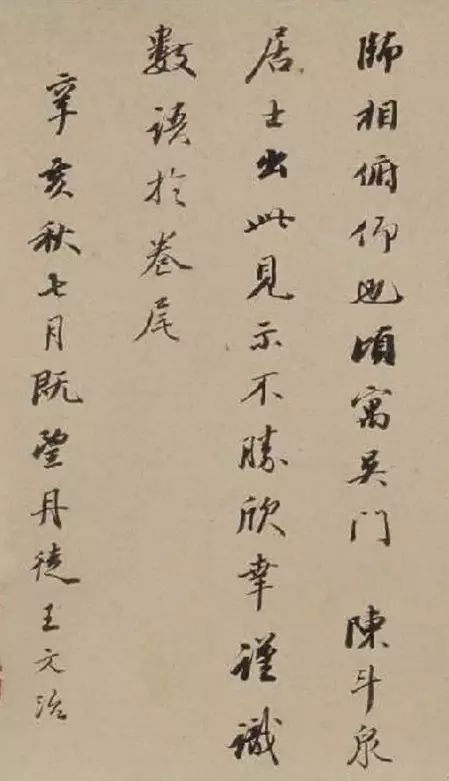 師相俯仰也頃寓吳门 陳斗泉
居士出此見示不勝欣幸謹識
數語於卷尾
辛亥秋七月既望丹徒王文治